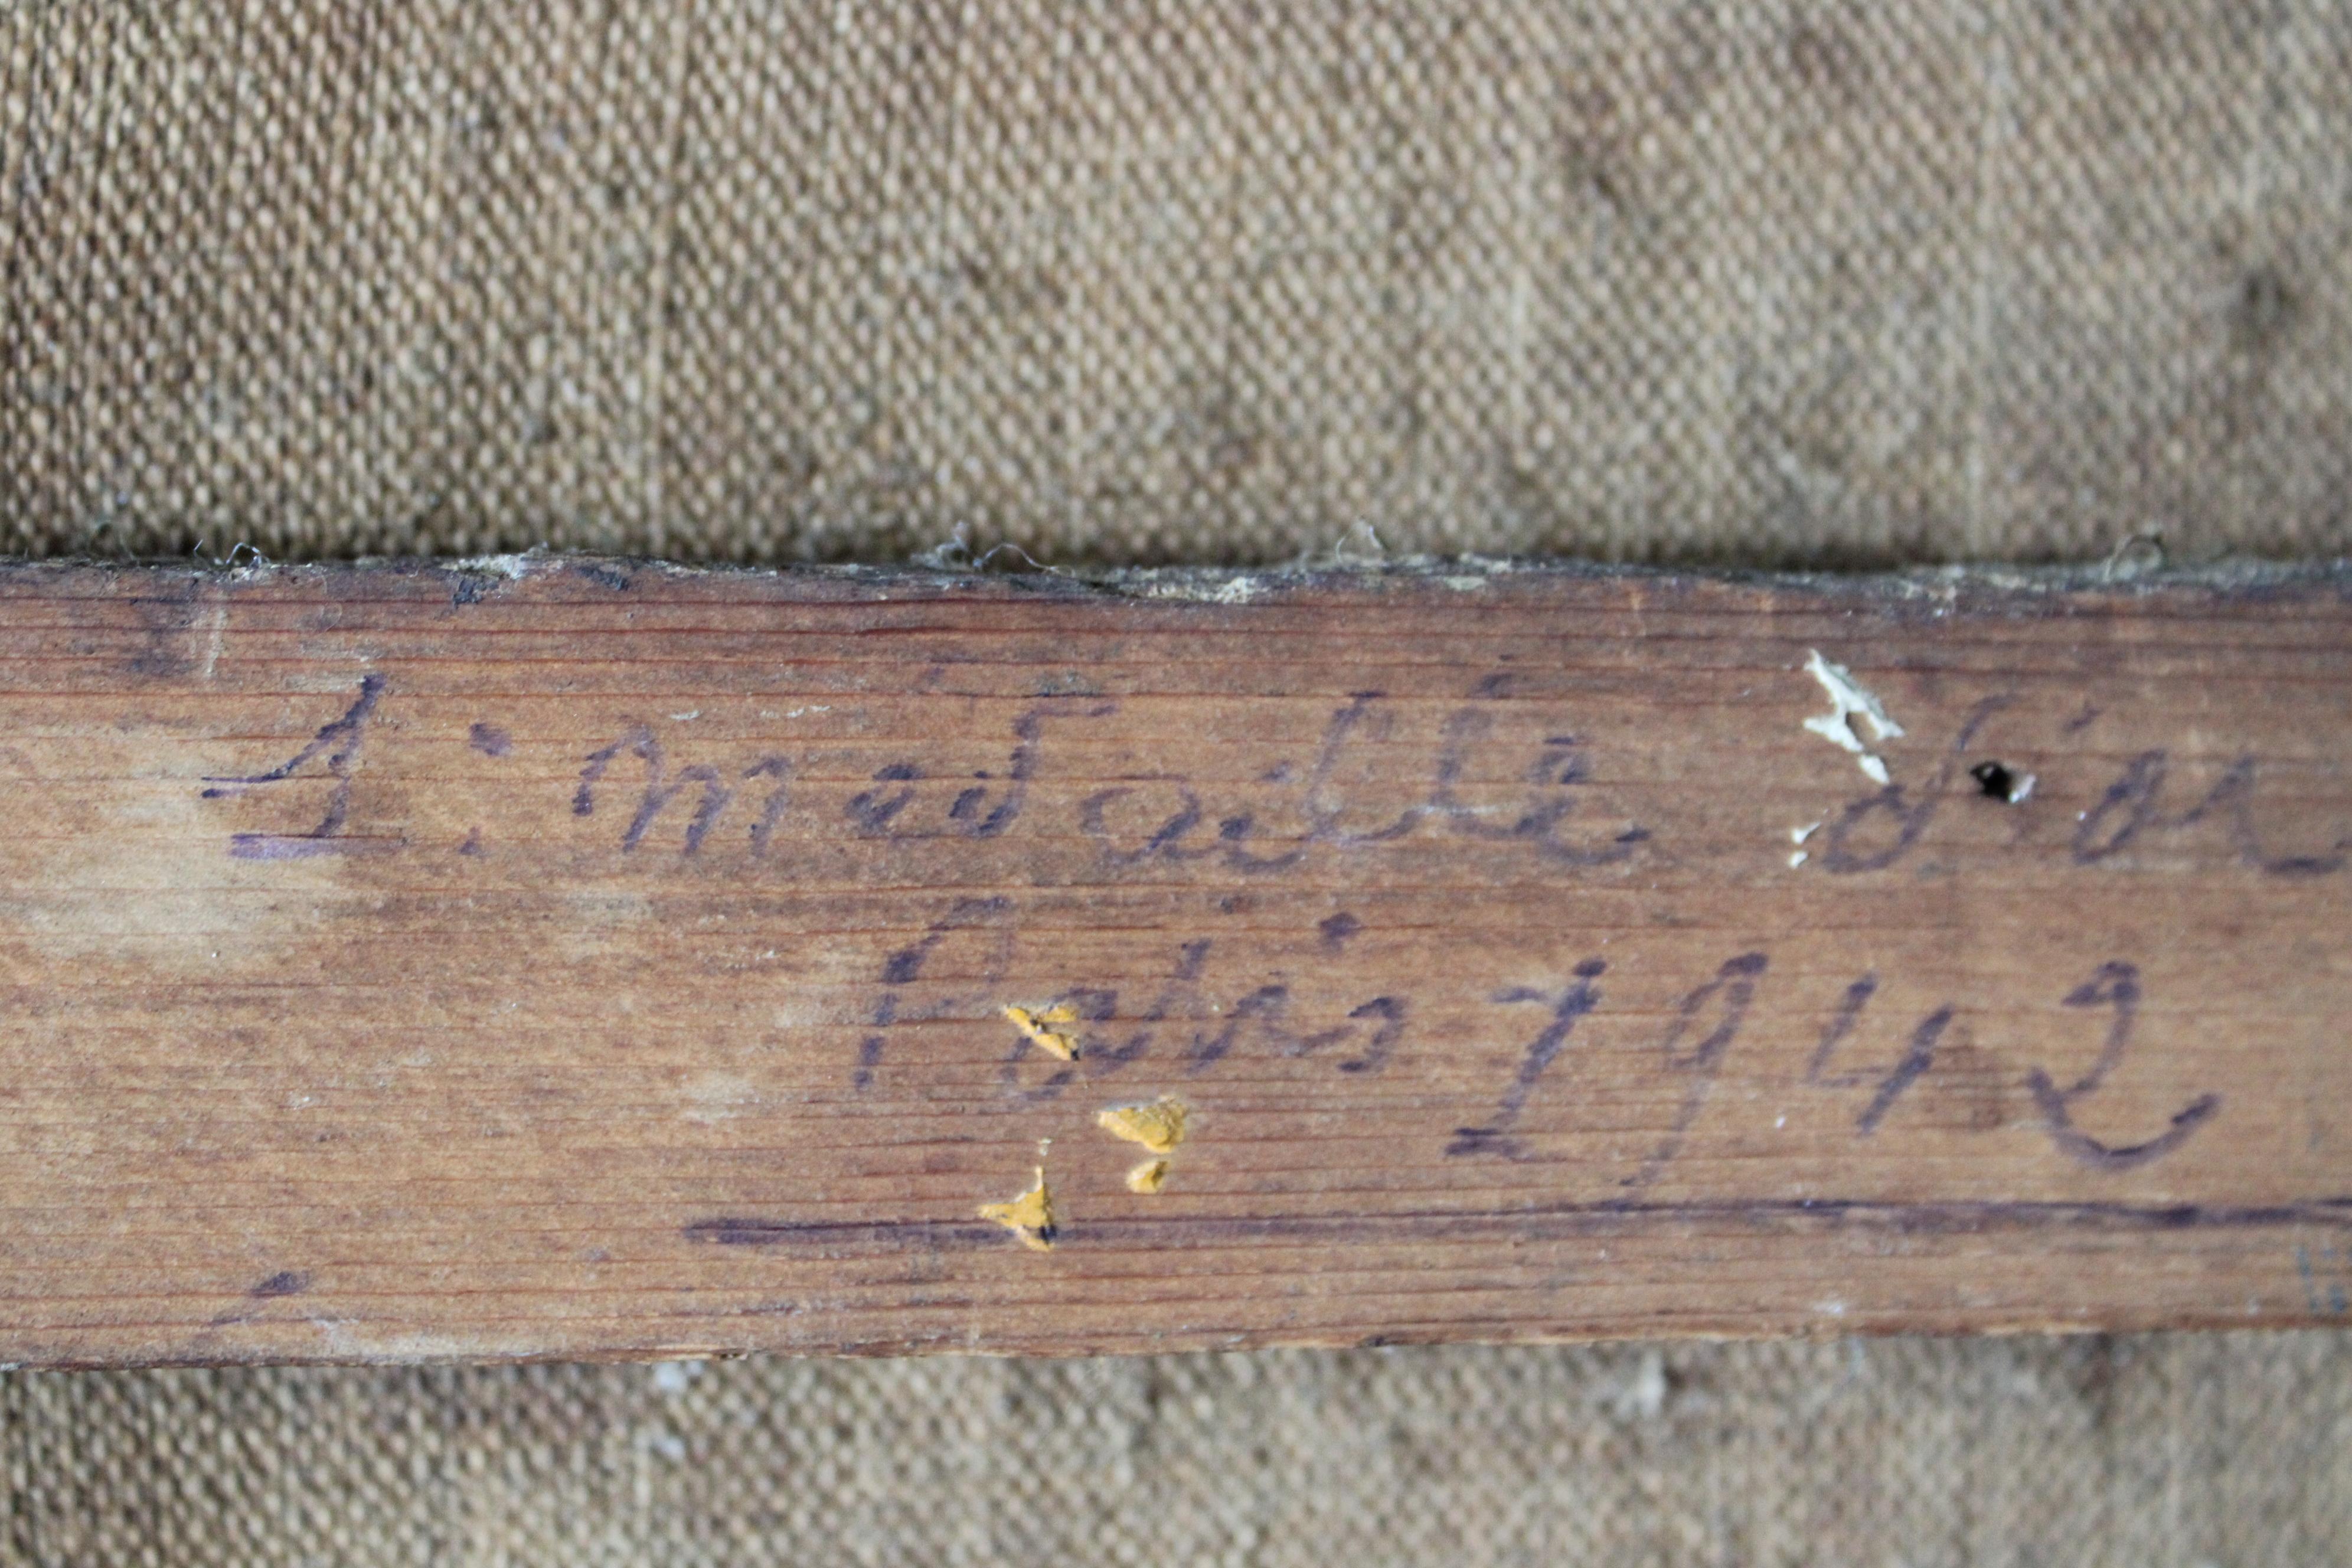 1: médaille d'or
Paris 1942